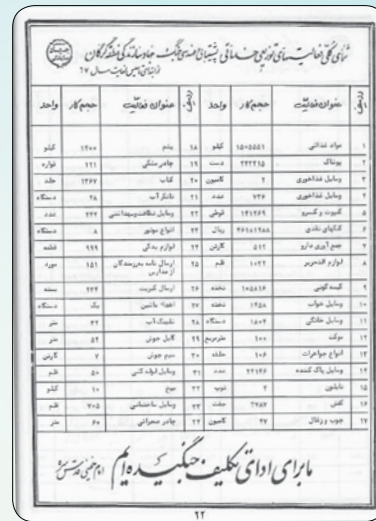 نمای کلی فعالیت‌های توزیعی خدماتی پشتیبانی مهندسی جنگ جهاد سازندگی منطقه گرگان
از ابتدای تاسیس لغایت سال ۶۷
ردیف عنوان فعالیت حجم کار واحد ردیف عنوان فعالیت حجم کار واحد
۱ مواد غذائی ۱۵۰۵۵۵۱ کیلو ۱۸ پشم ۱۴۰۰ کیلو
۲ پوشاک ۲۴۲۲۱۵ دست ۱۹ چادر مشکی ۱۲۱ قواره
۳ وسایل غذاخوری ۲ کامیون ۲۰ کتاب ۱۴۶۷ جلد
۴ وسایل غذاخوری ۷۳۶ عدد ۲۱ تانکر آب ۲۸ دستگاه
۵ کمپوت و کنسرو ۱۴۱۲۶۹ قوطی ۲۲ وسایل نظافت و بهداشتی عدد
۶ کمکهای نقدی ریال ۲۳ انواع موتور ۸ دستگاه
۷ جمع آوری دارو ۵۱۲ کارتن ۲۴ لوازم یدکی ۹۹۹ قطعه
۸ لوازم التحریر ۱۰۲۲ قلم ۲۵ ارسال نامه به رزمندگان از مدارس ۱۵۱ مورد
۹ کیسه گونی ۱۰۵۸۱۶ تخته ۲۶ ارسال کبریت ۲۳۴ بسته
۱۰ وسایل خواب ۱۴۵۸ تخته ۲۷ اهداء ماشین یک دستگاه
۱۱ وسایل خانگی ۱۸۰۴ دستگاه ۲۸ شلنگ آب ۴۲ متر
۱۲ موکت ۱۰۰ مترمربع ۲۹ کابل جوش ۵۴ متر
۱۳ انواع جواهرات ۱۰۶ حلقه ۳۰ سیم جوش ۷ کارتن
۱۴ وسایل پاک کننده ۲۲۱۴۶ عدد ۳۱ وسایل لوله کشی ۵۰ قلم
۱۵ نایلون ۲ توپ ۳۲ میخ ۱۰ کیلو
۱۶ کفش ۲۷۸۷ جفت ۳۳ وسایل ساختمانی ۷۰۵ قلم
۱۷ چوب و زغال ۲۷ کامیون ۳۴ چادر صحرائی ۶۰ متر
ما برای ادای تکلیف جنگیده ایم
امام خمینی قدس سره
۲۲